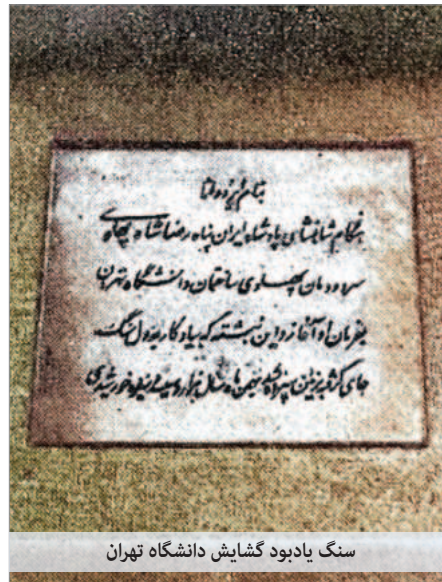 بنام ایزد دانا
هنگام شاهنشاهی پادشاه ایران پناه رضا شاه پهلوی
سر دودمان پهلوی ساختمان دانشگاه تهران
بفرمان او آغاز و این نبشته که بیادگار در دل سنگ
جای گرفته بزمین سپرده شد بهمن ماه سال هزار و سیصد و سیزده خورشیدی
سنگ یادبود گشایش دانشگاه تهران